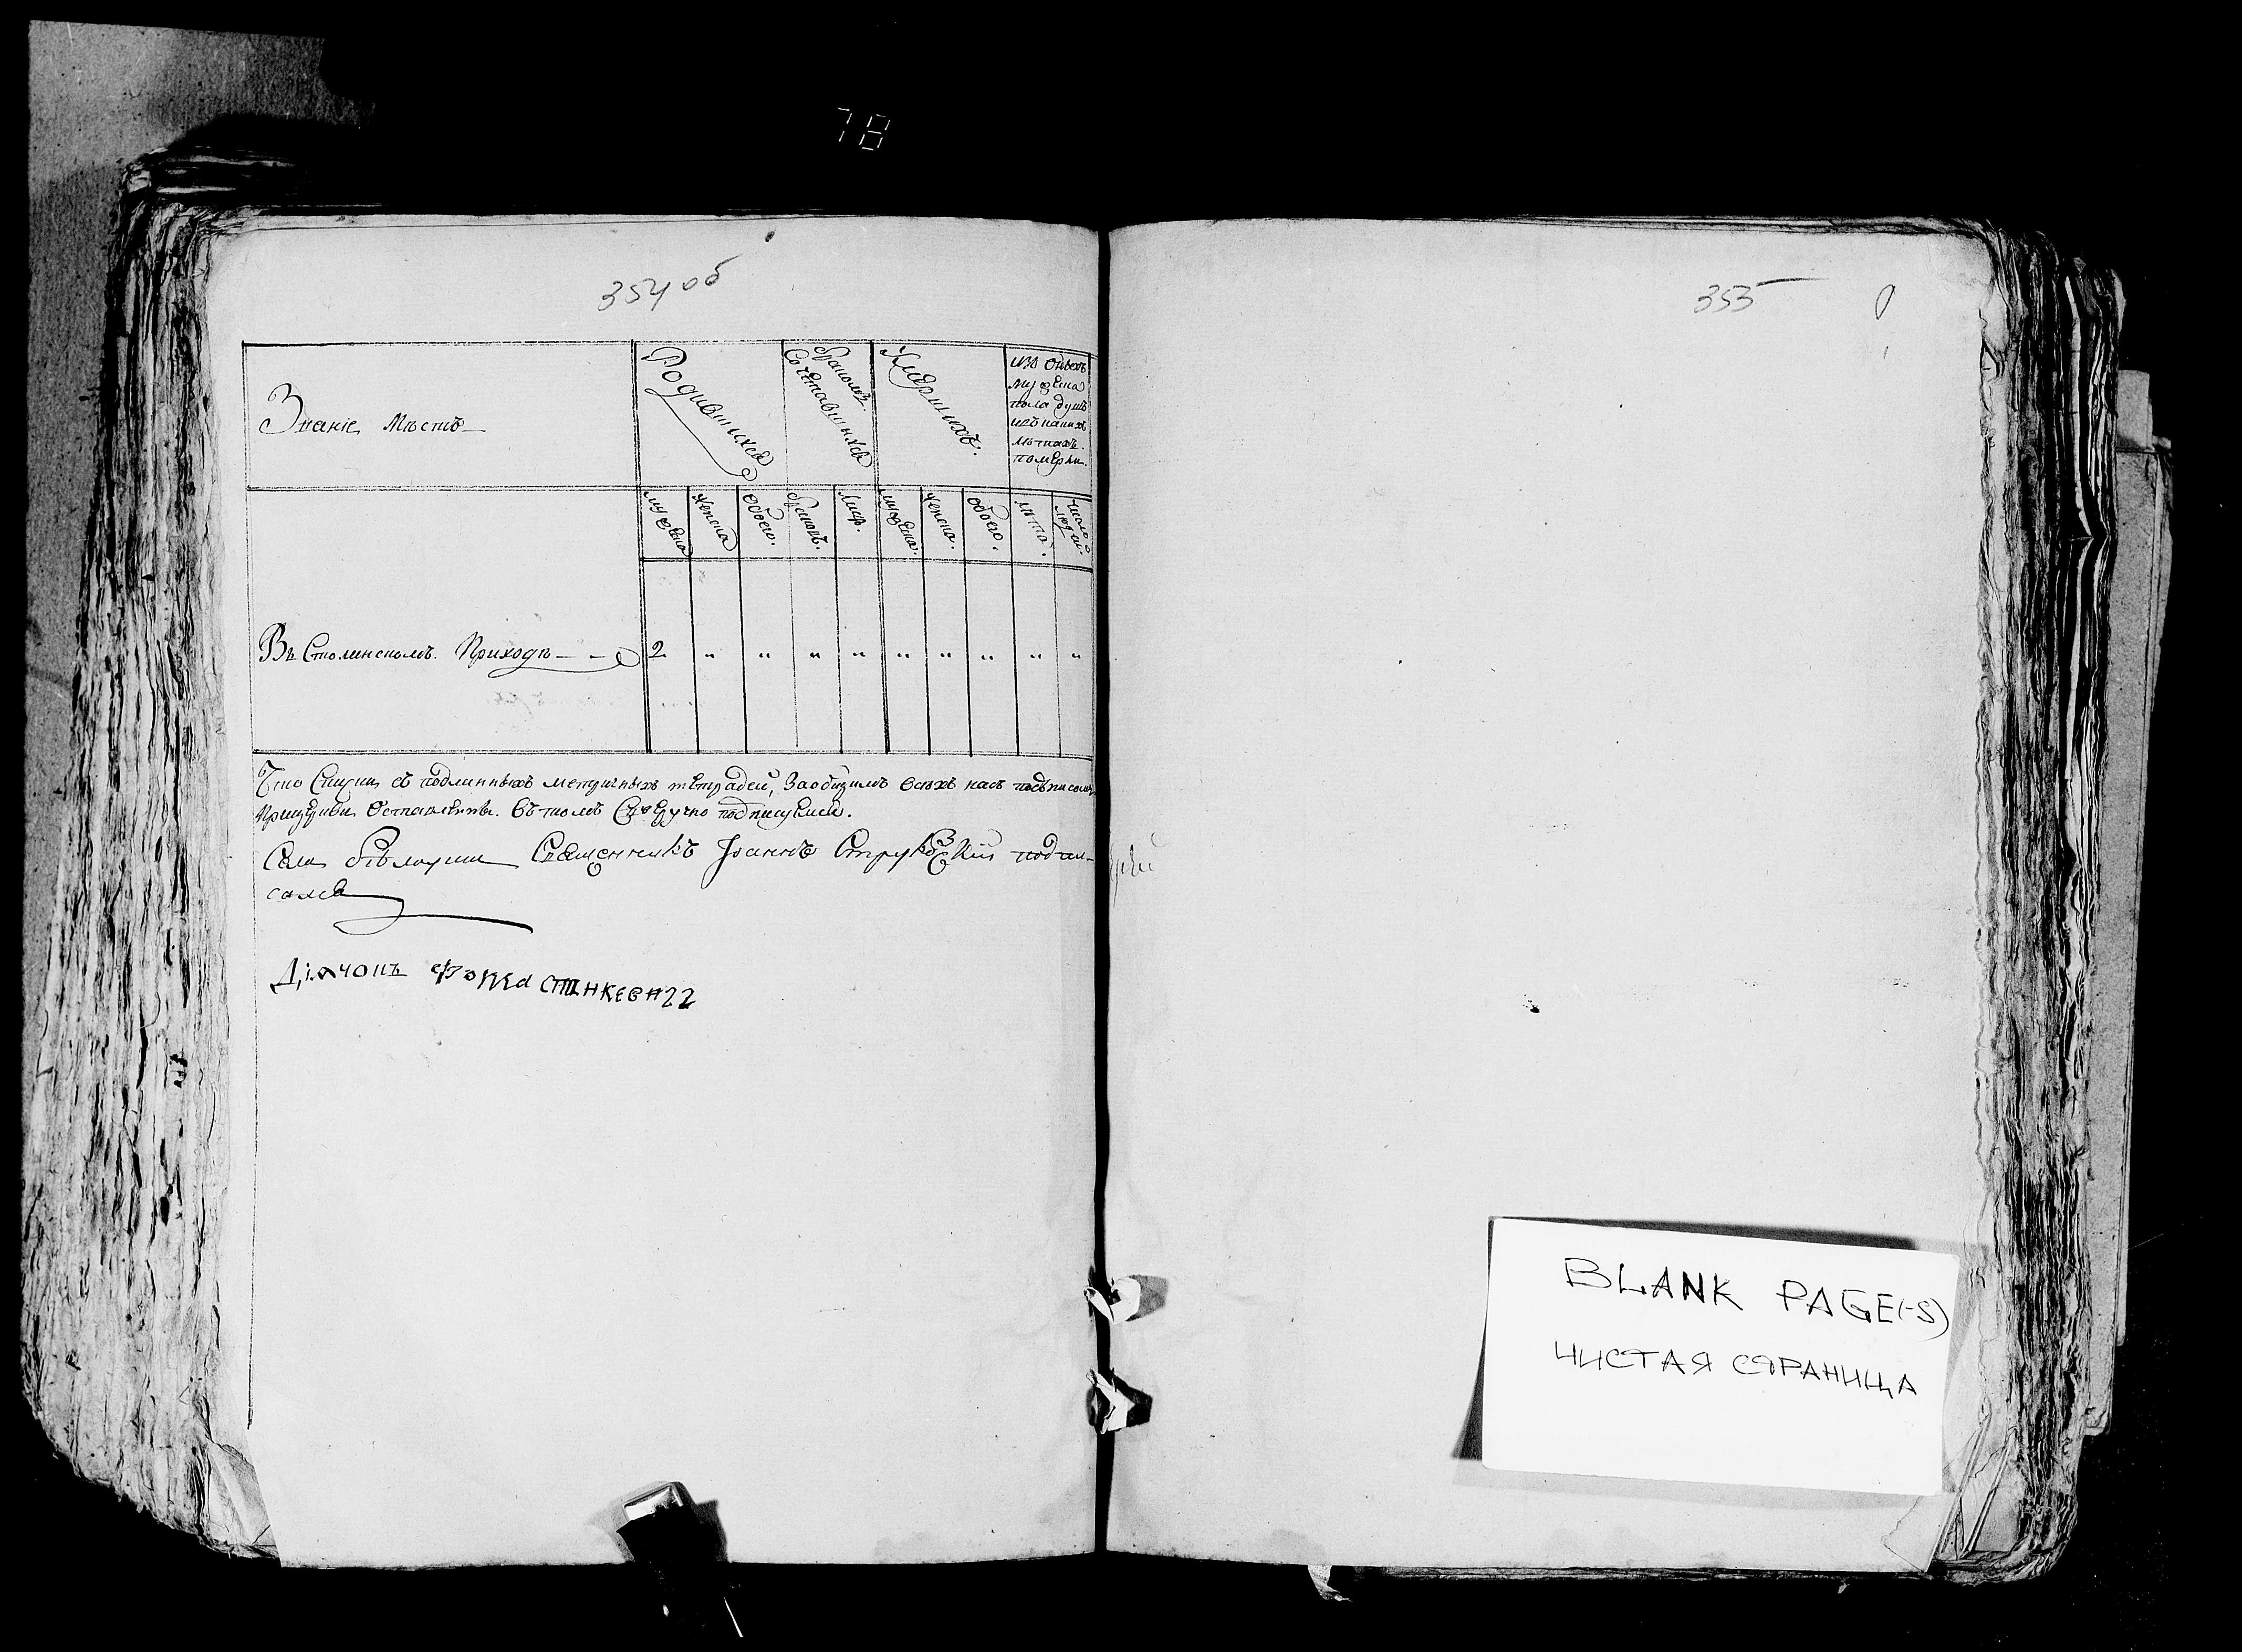 78
354 об
Званіе Мѣстъ
Родившихся
Бракомъ Сочетавшихся
Умершихъ.
изъ оныхъ
мужеска
пола душъ
въ какихъ
лѣтахъ
померли.
мужеска
женска
обоего.
браковъ.
лиц.
мужеска.
женска.
обоего.
лѣта.
число людей.
Въ Столинскомъ. Приходѣ
2 " " " " " " " " "
Что Сіи съ подлинныхъ метричныхъ тетрадей, За общимъ всѣхъ насъ подписомъ
При церкви Оставленны. Въ томъ Своеручно подписуемся.
Села Священникъ Іоаннъ подпи-
сался
Діячокъ Фома Станкевич
355
BLANK PAGE(-S)
ЧИСТАЯ СТРАНИЦА